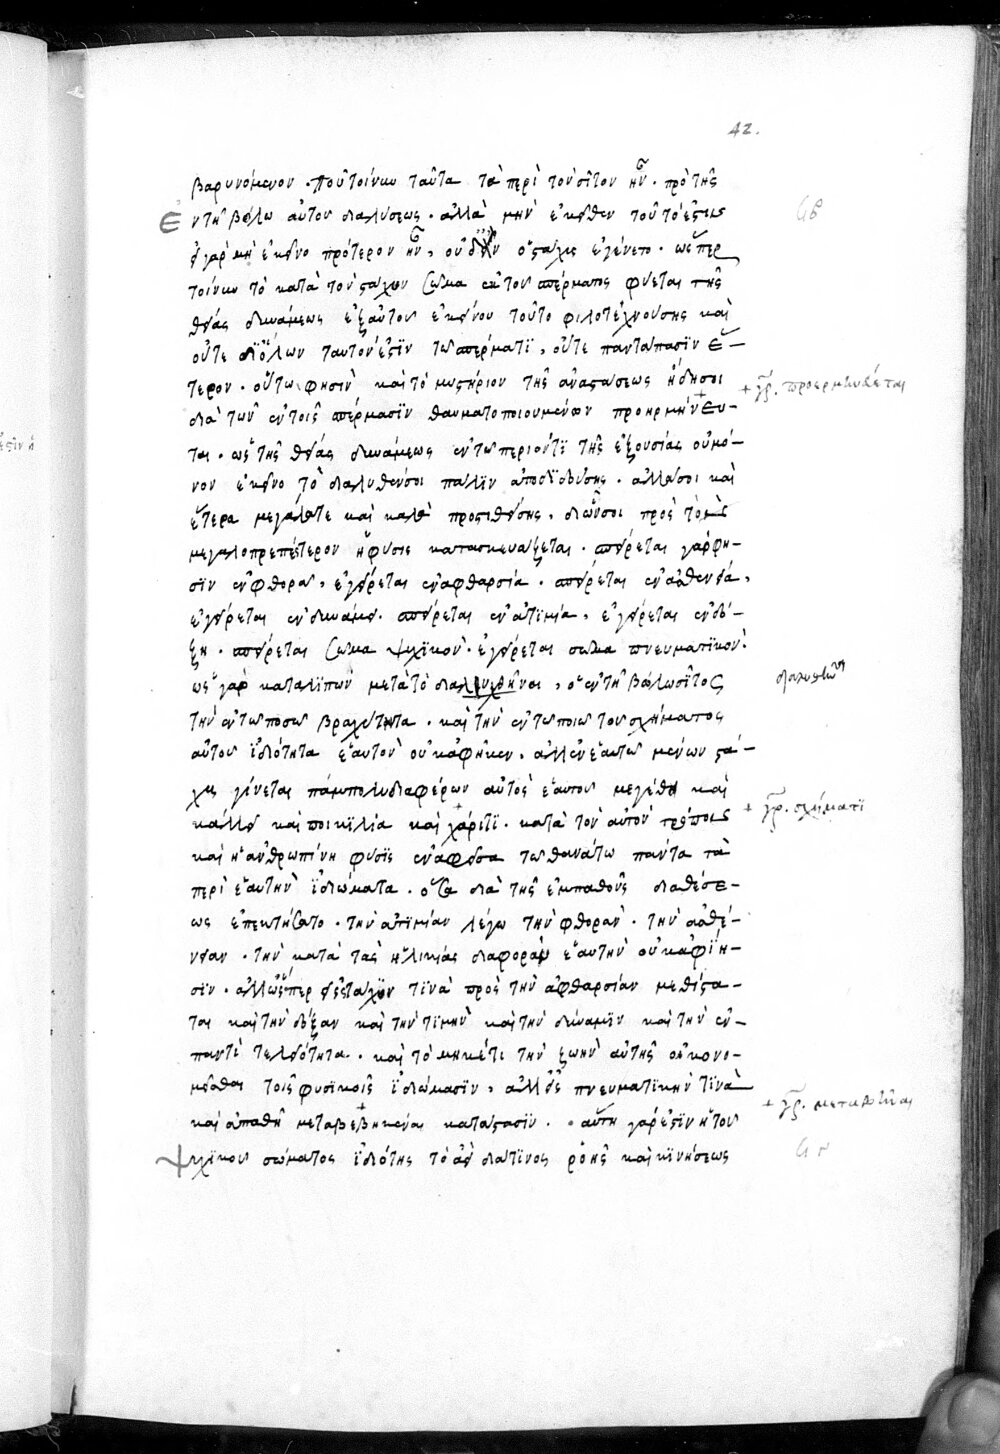 42.
βαρυνόμενον. ποῦ τοίνυν ταῦτα τὰ περὶ τὸν σῖτον ἦν. πρὸ τῆς
ἐν τῆ βώλω αὐτοῦ διαλύσεως. ἀλλὰ μὴν ἐκεῖθεν τοῦτό ἐστιν
εἰ γὰρ μὴ ἐκεῖνο πρότερον ἦν, οὐδ' ἂν ὁ στάχυς ἐγένετο. ὥσπερ
τοίνυν τὸ κατὰ τὸν στάχυν σῶμα ἐκ τοῦ σπέρματος φύεται τῆς
θείας δυνάμεως ἐξ αὐτοῦ ἐκείνου τοῦτο φιλοτεχνούσης καὶ
οὔτε δι' ὅλων ταυτόν ἐστιν τῶ σπέρματι, οὔτε παντάπασιν ἕ–
τερον. οὕτω φησὶν καὶ τὸ μυστήριον τῆς ἀναστάσεως ἤδη σοι
διὰ τῶν ἐν τοῖς σπέρμασιν θαυματοποιουμένων προηρμήνευ–
+ γρ. προερμηνεύεται
ται. ὡς τῆς θείας δυνάμεως ἐν τῶ περιόντι τῆς ἐξουσίας οὐ μό–
νον ἐκεῖνο τὸ διαλυθέν σοι πάλιν ἀποδιδούσης. ἀλλά σοι καὶ
ἕτερα μεγάλά τε καὶ καλὰ προστιθείσης, δι' ὧν σοι πρὸς τὸ
μεγαλοπρεπέστερον ἡ φύσις κατασκευάζεται. σπείρεται γὰρ φη–
σὶν ἐν φθορᾶ, ἐγείρεται ἐν ἀφθαρσία. σπείρεται ἐν ἀσθενεία,
ἐγείρεται ἐν δυνάμει. σπείρεται ἐν ἀτιμία, ἐγείρεται ἐν δό–
ξη. σπείρεται σῶμα ψυχικόν. ἐγείρεται σῶμα πνευματικόν.
ὡς γὰρ καταλιπὼν μετὰ τὸ διαλυθῆναι, ὁ ἐν τῆ βώλω σῖτος
τὴν ἐν τῶ ποσῶ βραχύτητα. καὶ τὴν ἐν τῶ ποιῶ τοῦ σχήματος
αὐτοῦ ἰδιότητα ἑαυτὸν οὐκ ἀφῆκεν. ἀλλ' ἐν ἑαυτῶ μένων στά–
χυς γίνεται πάμπολυ διαφέρων αὐτὸς ἑαυτοῦ μεγέθει καὶ
κάλλει καὶ ποικιλία καὶ χάριτι. κατὰ τὸν αὐτὸν τρόπον
+ γρ. σχήματι
καὶ ἡ ἀνθρωπίνη φύσις ἐναφεῖσα τῶ θανάτω πάντα τὰ
περὶ ἑαυτὴν ἰδιώματα. ὅσα διὰ τῆς ἐμπαθοῦς διαθέσε–
ως ἐπεκτήσατο. τὴν ἀτιμίαν λέγω τὴν φθοράν. τὴν ἀσθέ–
νειαν. τὴν κατὰ τὰς ἡλικίας διαφορὰν ἑαυτὴν οὐκ ἀφίη–
σιν. ἀλλ' ὥσπερ εἰς στάχυν τινὰ πρὸς τὴν ἀφθαρσίαν μεθίστα–
ται καὶ τὴν δόξαν καὶ τὴν τιμὴν καὶ τὴν δύναμιν καὶ τὴν ἐν–
παντὶ τελειότητα. καὶ τὸ μηκέτι τὴν ζωὴν αὐτῆς οἰκονο–
μεῖσθαι τοῖς φυσικοῖς ἰδιώμασιν, ἀλλ' εἰς πνευματικήν τινα
καὶ ἀπαθῆ μεταβεβηκέναι κατάστασιν. αὕτη γάρ ἐστιν ἡ τοῦ
+ γρ. μεταβῆναι
ψυχικοῦ σώματος ἰδιότης τὸ ἀεὶ διά τινος ῥοῆς καὶ κινήσεως